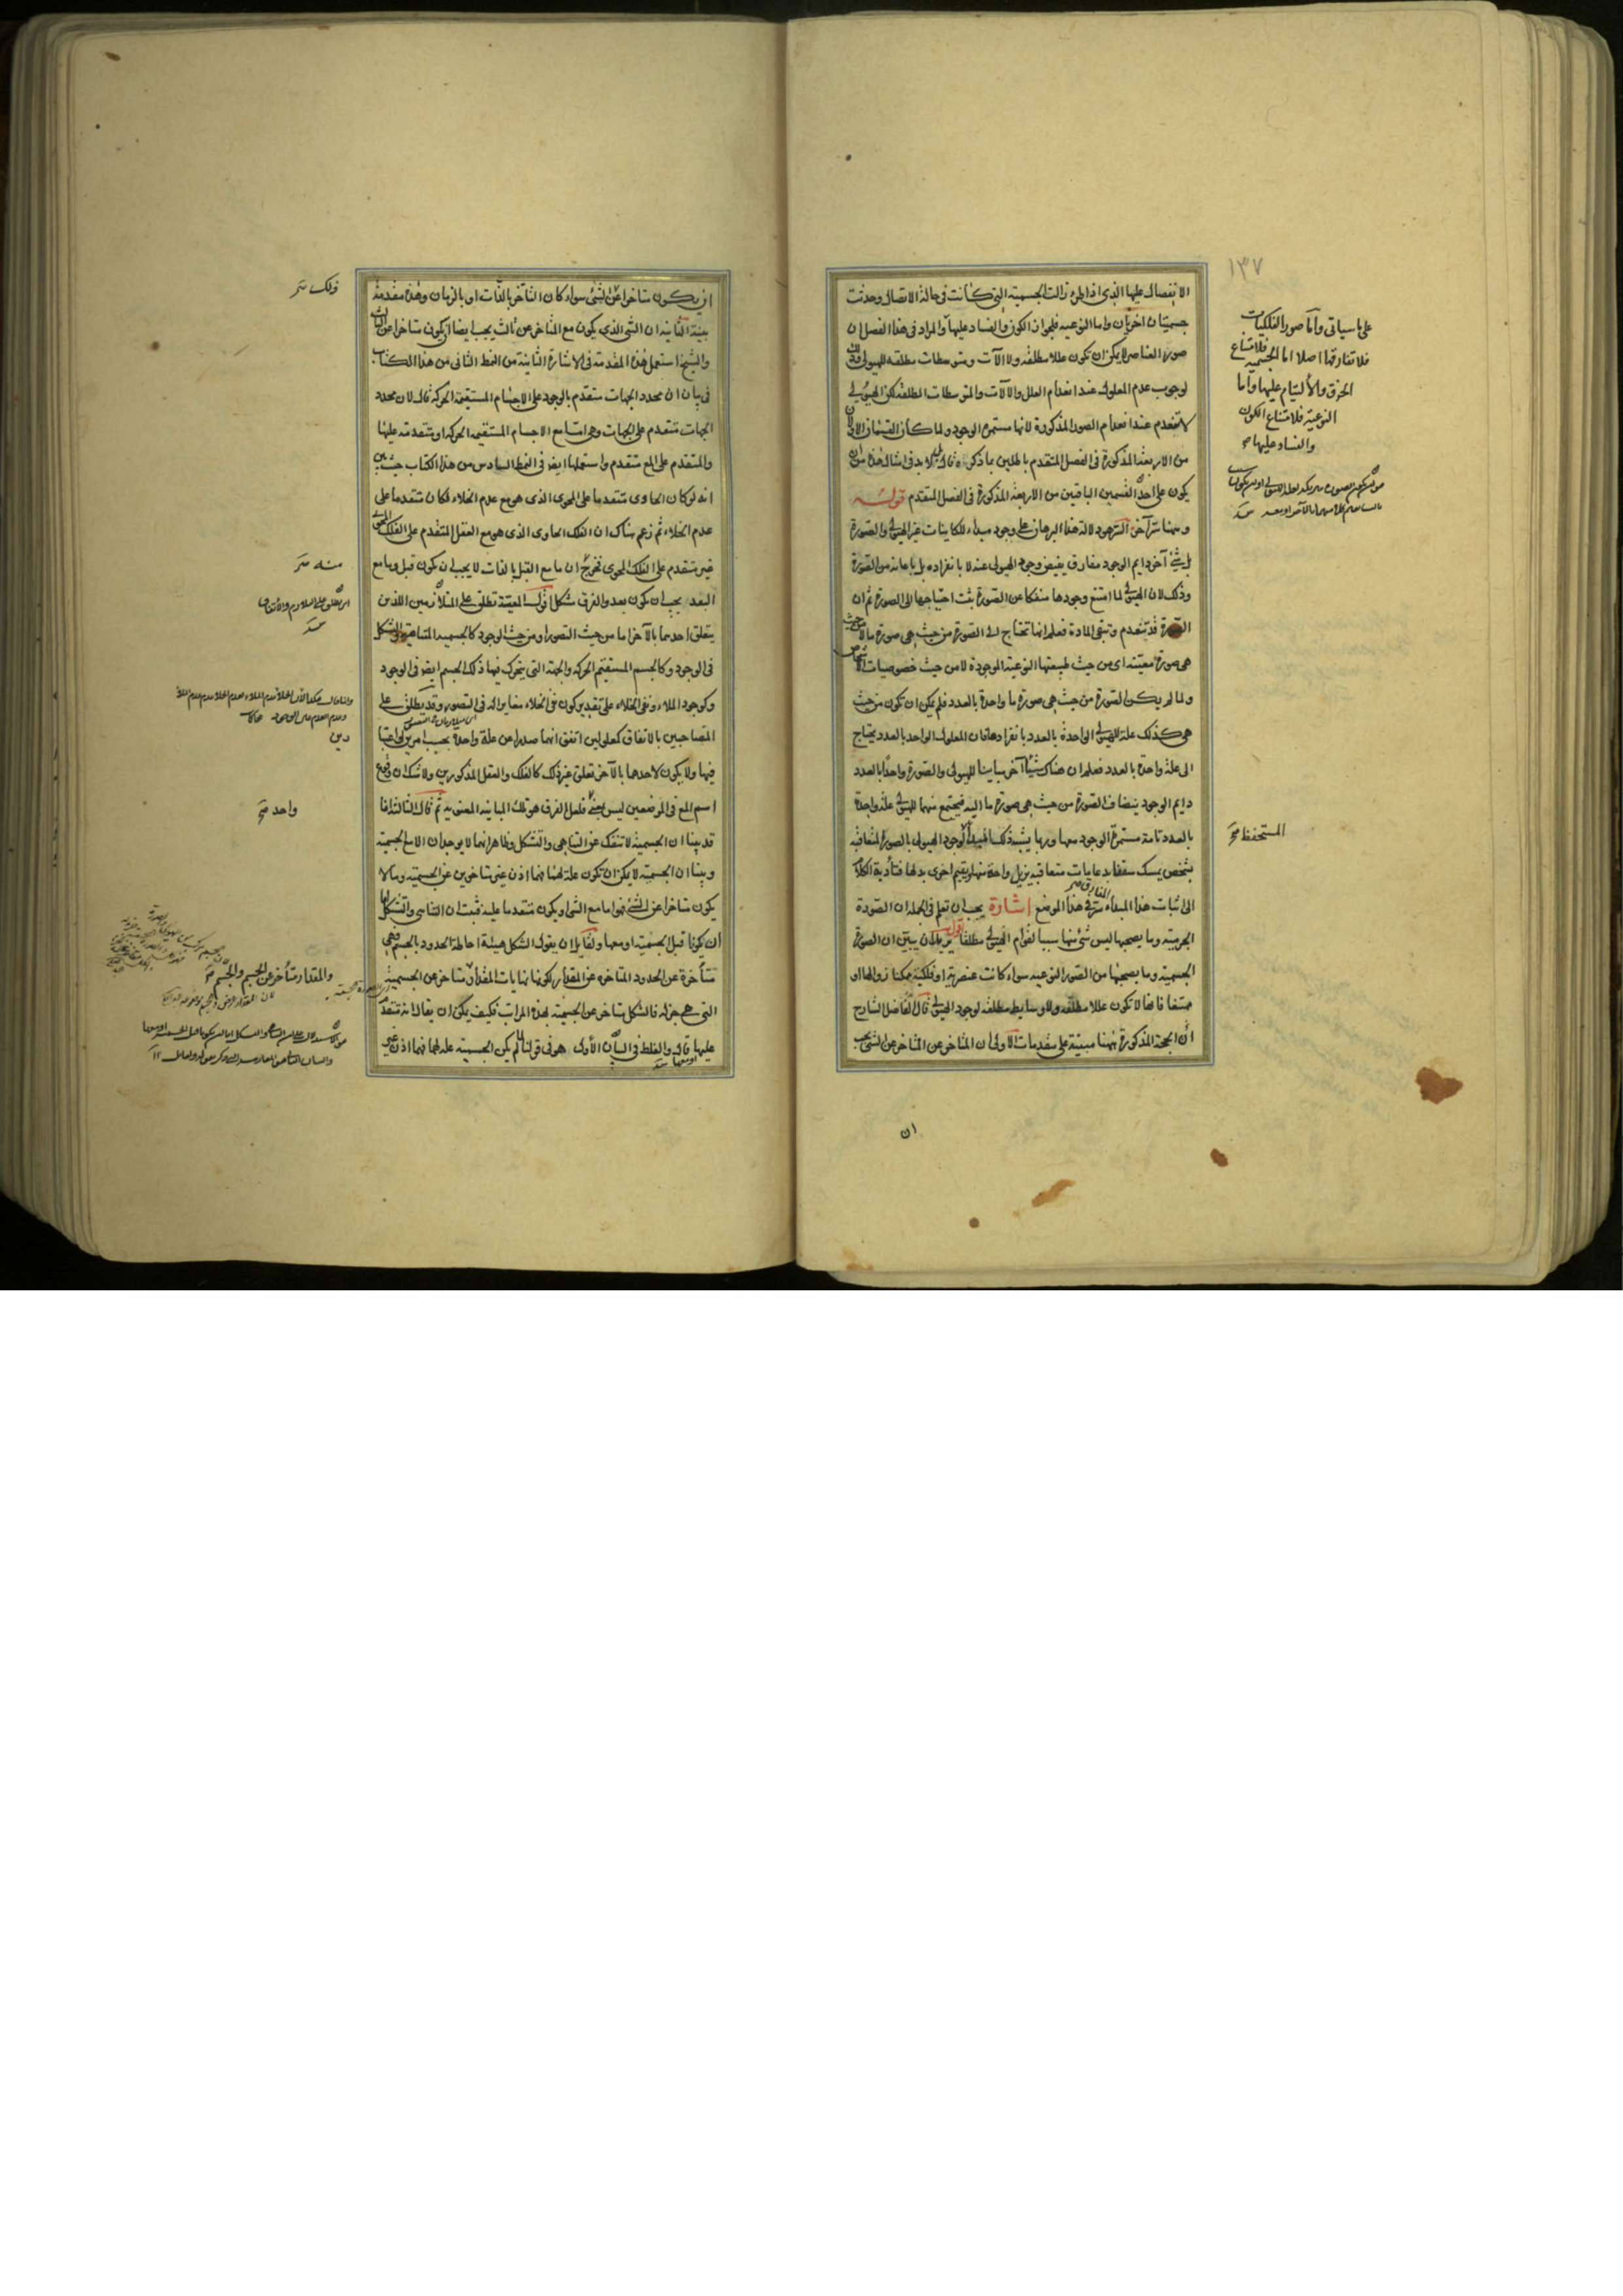 ١٣٧
الانفصال عليها الذى اذا طرء زالت الجسمية التى كانت فى حالة الاتصال وحدثت
جسميتان اخريان واما النوعيه فلجواز الكون والفساد عليها والمراد فى هذا الفصل ان
صور العناصر لا يمكن ان تكون عللا مطلقة ولا آلات ومتوسطات مطلقه للهيولى وذلك
لوجوب عدم المعلول عند انعدام العلل والآلات والمتوسطات المطلقة لكن الهيولى
لا تنعدم عند انعدام الصور المذكورة لانها مستمرة الوجود ولما كان القسمان الاولان
من الاربعة المذكورة فى الفصل المتقدم باطلين بما ذكره قال لابد فى امثال هذا من ان
يكون على احد القسمين الباقيين من الاربعة المذكورة فى الفصل المتقدم قوله
وههنا سر آخر السر هو دلالة هذا البرهان على وجود مبداء للكاينات غير الهيولى والصورة
بل شئ آخر دايم الوجود مفارق يفيض وجود الهيولى عنه لا بانفراده بل باعانة من الصورة
وذلك لان الهيولى لما امتنع وجودها منفكا عن الصورة ثبت احتياجها الى الصورة ثم ان
الصورة قد تنعدم وتبقى المادة فعلم انها تحتاج الى الصورة من حيث هى صورة ما لا من حيث
هى صورة معينة اى من حيث طبيعتها النوعية الموجودة لا من حيث خصوصيات الاشخاص
ولما لم يكن الصورة من حيث هى صورة ما واحدة بالعدد فلم يمكن ان تكون من حيث
هى كذلك علة للهيولى الواحدة بالعدد بانفرادها فان المعلول الواحد بالعدد يحتاج
الى علة واحدة بالعدد فعلم ان هناك شيئا آخر مباينا للهيولى والصورة واحدا بالعدد
دايم الوجود ينضاف الصورة من حيث هى صورة ما اليه فيجتمع منهما للهيولى علة واحدة
بالعدد تامة مستمرة الوجود معها وربما يشبه ذلك المبداء لوجود الهيولى بالصور المتعاقبة
بشخص يمسك سقفا بدعامات متعاقبه يزيل واحدة منها ويقيم اخرى بدلها فتأدية الكلام
الى اثبات هذا المبداء سر فى هذا الموضع اشارة يجب ان تعلم فى الجمله ان الصورة
الجرميه وما يصحبها ليس شئ منها سببا لقوام الهيولى مطلقا اقول يريد ان يبين ان الصورة
الجسمية وما يصحبها من الصور النوعيه سواء كانت عنصرية او فلكية ممكنا زوالها او
ممتنعا فانها لا تكون عللا مطلقه ولا وسايط مطلقه لوجود الهيولى قال الفاضل الشارح
ان الحجة المذكورة ههنا مبنية على مقدمات الاولى ان المتاخر عن المتاخر عن الشئ يجب
ان
على ما سياتى واما صور الفلكيات
فلا تفارقها اصلا اما الجسميه فلامتناع
الخرق والالتيام عليها واما
النوعية فلامتناع الكون
والفساد عليها صح
المستحفظ صح
ان يكون متاخرا عن الشئ سواء كان التأخر بالذات او بالزمان وهذه مقدمة
بينة الثانية ان الشئ الذى يكون مع المتاخر عن ثالث يجب ايضا ان يكون متاخرا عن الثالث
والشيخ استعمل هذه المقدمة فى الاشارة الثانية من النمط الثانى من هذا الكتاب
فى بيان ان محدد الجهات متقدم بالوجود على الاجسام المستقيمة الحركه قال لان محدد
الجهات متقدم على الجهات وهى اما مع الاجسام المستقيمه الحركة او متقدمة عليها
والمتقدم على المع متقدم واستعملها ايضا فى النمط السادس من هذا الكتاب حيث بين
انه لو كان الحاوى متقدما على المحوى الذى هو مع عدم الخلاء لكان متقدما على
عدم الخلاء ثم زعم هناك ان الفلك الحاوى الذى هو مع العقل المتقدم على الفلك المحوى
غير متقدم على الفلك المحوى فخرج ان ما مع القبل بالذات لا يجب ان يكون قبل وما مع
البعد يجب ان يكون بعد والفرق مشكل اقول المعيتة تطلق على المتلازمين اللذين
يتعلق احدهما بالآخر اما من حيث التصور او من حيث الوجود كالجسميه المتناهية والشكل
فى الوجود وكالجسم المستقيم الحركه والجهة التى يتحرك فيها ذلك الجسم ايضا فى الوجود
وكوجود الملاء ونفى الخلاء على تقدير كون نفى الخلاء مغايرا له فى التصور وقد يطلق على
المتصاحبين بالاتفاق كمعلولين اتفق انهما صدرا عن علة واحدة بحسب امرين او اعتبارين
فيها ولا يكون لاحدهما بالآخر تعلق غير ذلك كالفلك والعقل المذكورين ولا شك ان وقوع
اسم المع فى الموضعين ليس بمعنى فلعل الفرق هو تلك المباينة المعنويه ثم قال الثالثة انا
قد بينا ان الجسمية لا تنفك عن التناهى والتشكل وظاهر انهما لا يوجدان الا مع الجسمية
وبينا ان الجسميه لا يمكن ان تكون علة لهما فهما اذن غير متاخرين عن الجسميه وما لا
يكون متاخرا عن الشئ فهو اما مع الشئ او يكون متقدما عليه فثبت ان التناهى والتشكل اما
ان يكونا قبل الجسمية او معها ولقايل ان يقول الشكل هيئة احاطة الحدود بالجسم فهى
متأخرة عن الحدود المتاخره عن المقدار لكونها نهايات المقدار متاخر عن الجسمية
التى هى جزء له فالشكل متاخر عن الجسمية بهذه المراتب فكيف يمكن ان يقال انه متقدم
عليها قال والغلط فى البيان الأول هو فى قولنا لما لم يكن الجسميه علة لهما فهما اذن غير
فلك
واحد صح
والمقدار متأخر عن الجسم والجسم صح